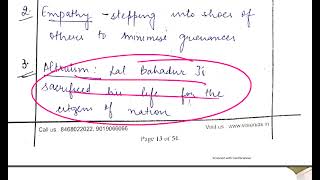 2. Empathy - stepping into shoes of
others to minimise grievances
3. Altruism: Lal Bahadur Ji
sacrificed his life for the
citizen of nation
Call us : 8468022022, 9019066066
Visit us : www.visionias.in
Page 13 of 54
Scanned with CamScanner